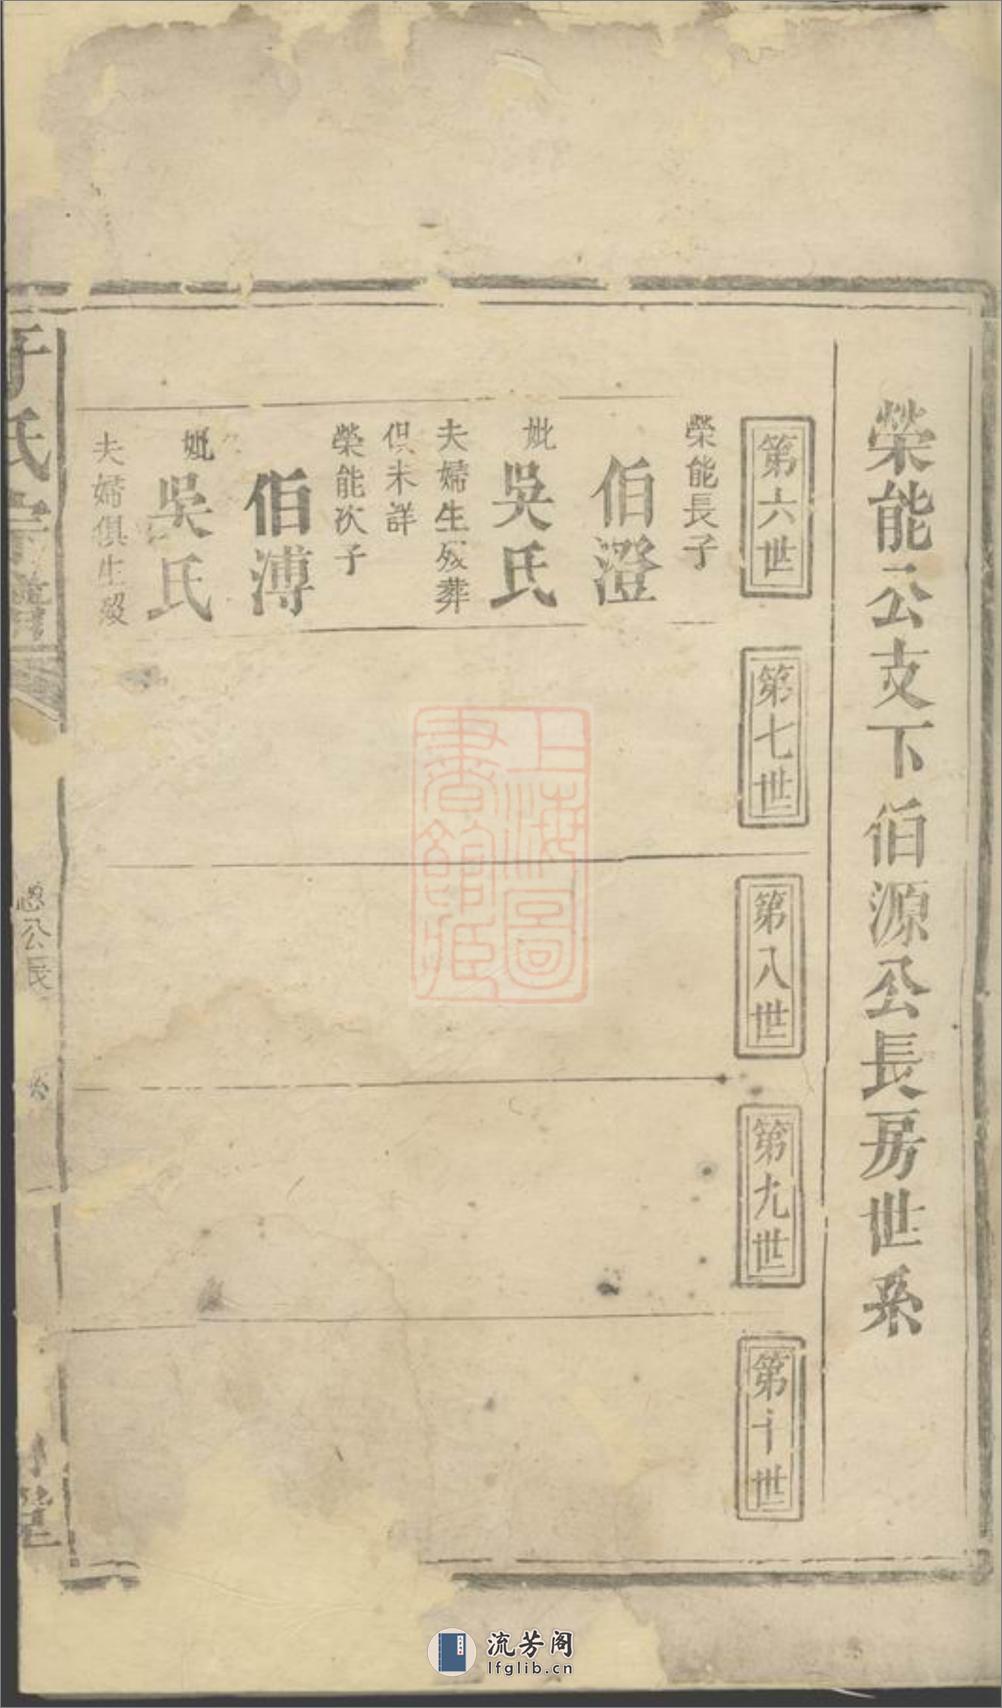 榮能公支下伯源公長房世系
第六世
第七世
第八世
第九世
第十世
榮能長子
伯澄
妣吳氏
夫婦生殁葬
俱未詳
榮能次子
伯溥
妣吳氏
夫婦俱生殁
氏宗譜
公長
上海圖
書館藏
流芳阁
lfglib.cn